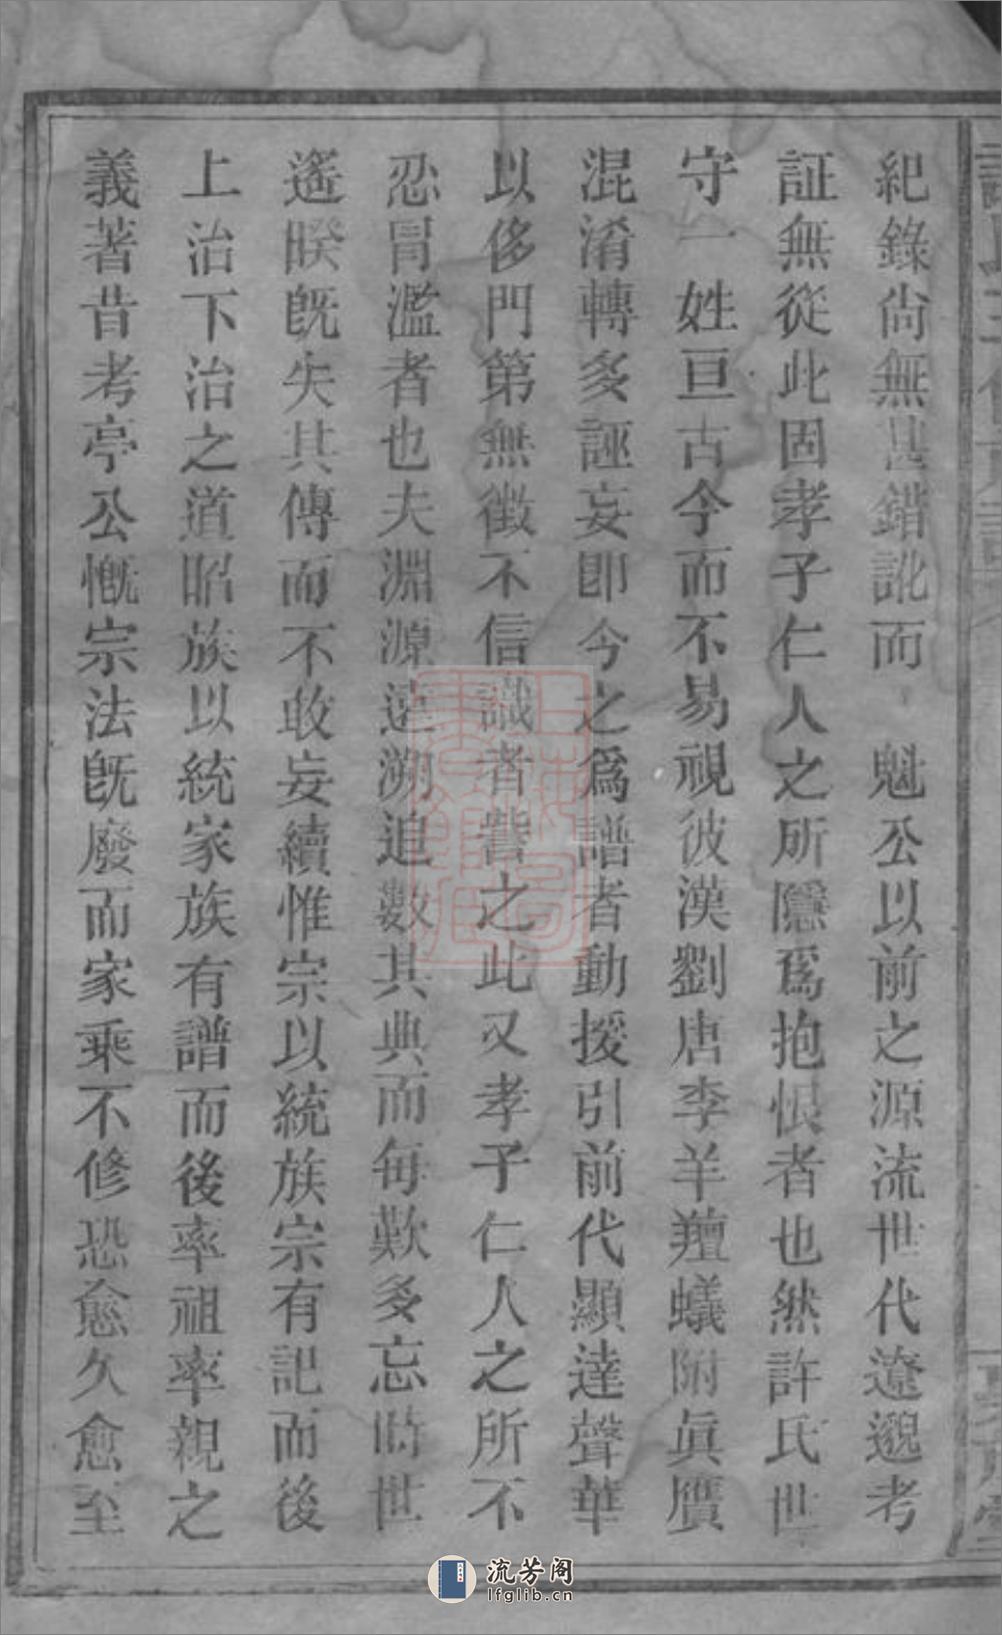 紀錄尚無甚錯訛而 魁公以前之源流世代遼邈考
証無從此固孝子仁人之所隱爲抱恨者也然許氏世
守一姓亘古今而不易視彼漢劉唐李羊羶蟻附眞贋
混淆轉多誣妄卽今之爲譜者動援引前代顯達聲華
以侈門第無徵不信識者訾之此又孝子仁人之所不
忍冒濫者也夫淵源遠溯追數其典而每歎多忘時世
遙暌旣失其傳而不敢妄續惟宗以統族宗有記而後
上治下治之道昭族以統家族有譜而後率祖率親之
義著昔考亭公慨宗法旣廢而家乘不修恐愈久愈至
流芳阁
lfglib.cn